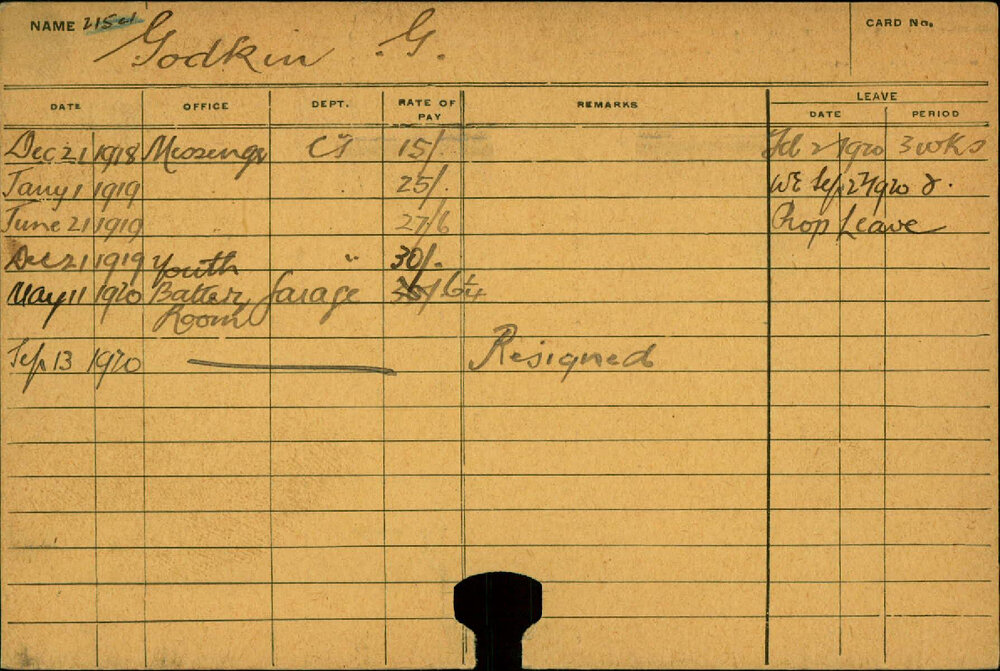 NAME Godkin G. CARD No.
DATE OFFICE DEPT. RATE OF PAY REMARKS LEAVE DATE PERIOD
Dec 21 1918 Messenger 15/- Feb 1920 3 wks
Jany 1 1919 25/. WE Sep 1920
June 21 1919 27/6 Prop Leave
Dec 21 1919 Youth " 30/.
May 11 1920 Battery Garage
Room
Sep 13 1920 Resigned